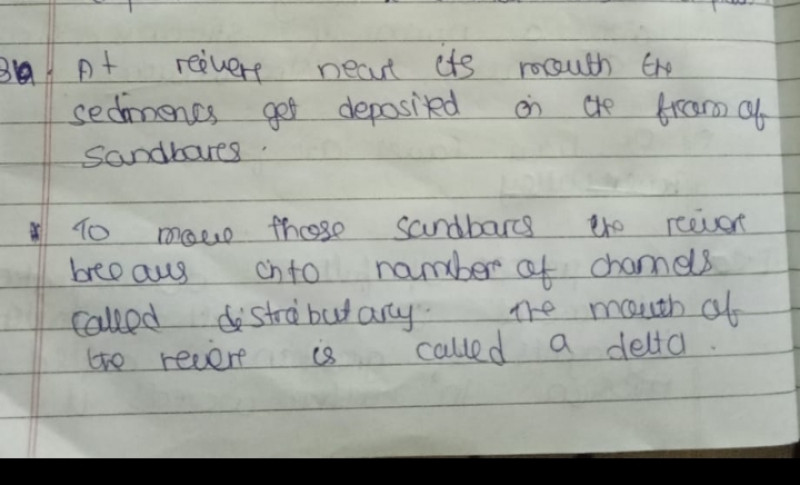 39. At reivere near its mouth the
sediments get deposited in the fram of
sandbares.
* To move those sandbars the reiver
breaaus into number of channels
called distributary. The mouth of
the reiere is called a delta.